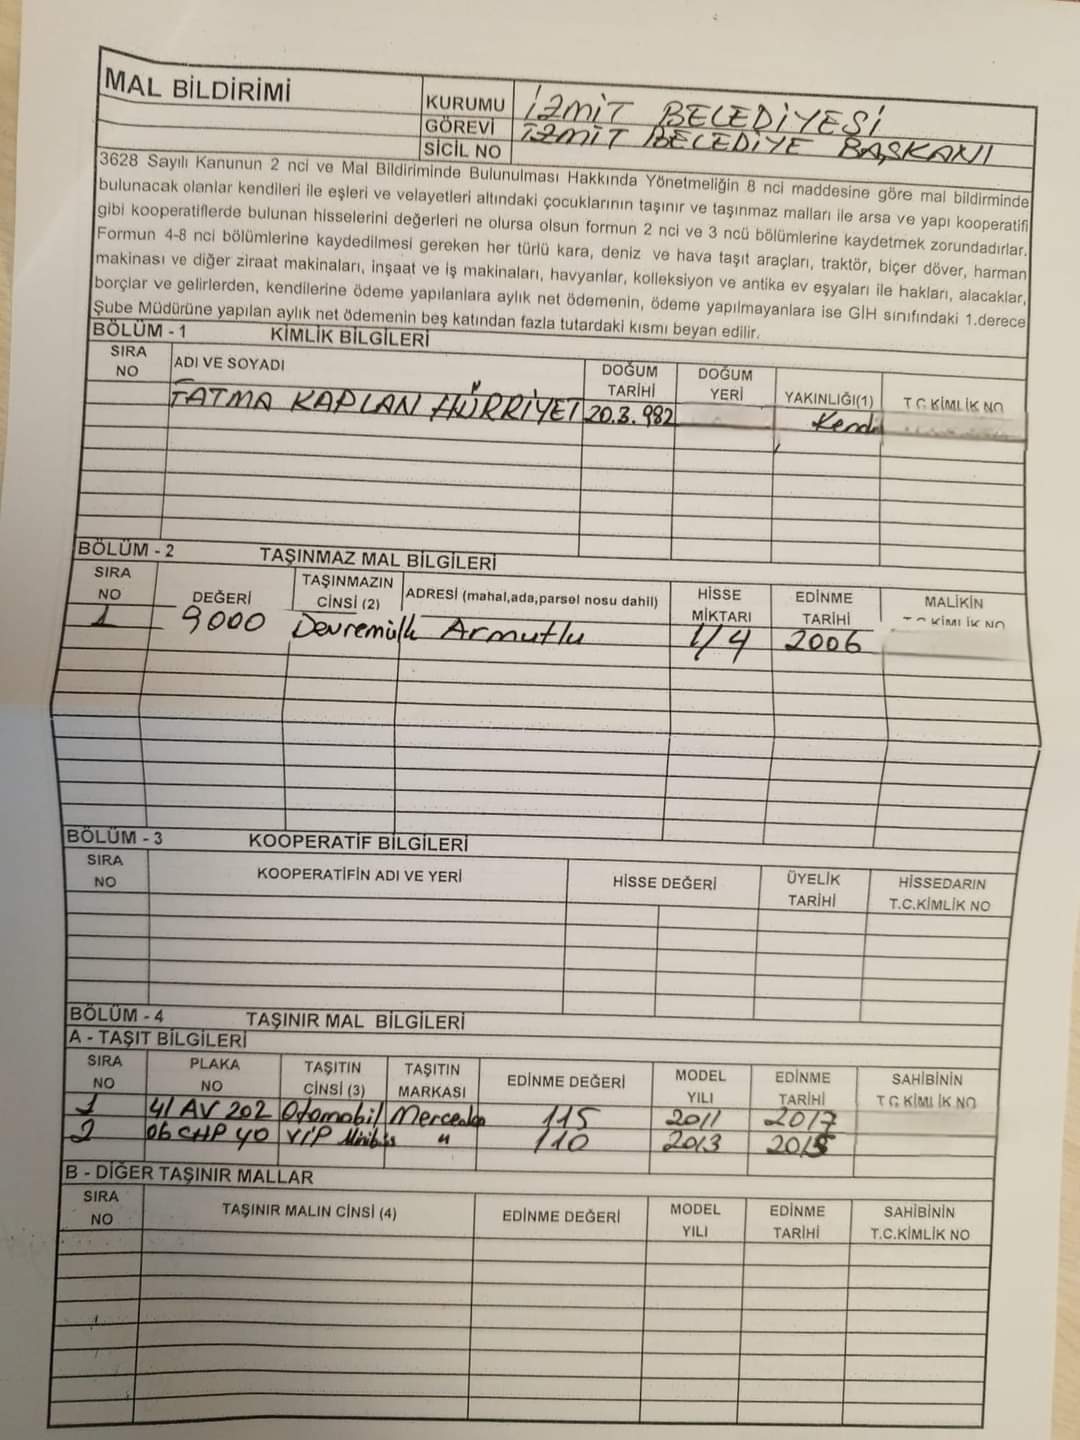 MAL BİLDİRİMİ
KURUMU İZMİT BELEDİYESİ
GÖREVİ İZMİT BELEDİYE BAŞKANI
SİCİL NO
3628 Sayılı Kanunun 2 nci ve Mal Bildiriminde Bulunulması Hakkında Yönetmeliğin 8 nci maddesine göre mal bildirminde
bulunacak olanlar kendileri ile eşleri ve velayetleri altındaki çocuklarının taşınır ve taşınmaz malları ile arsa ve yapı kooperatifi
gibi kooperatiflerde bulunan hisselerini değerleri ne olursa olsun formun 2 nci ve 3 ncü bölümlerine kaydetmek zorundadırlar.
Formun 4-8 nci bölümlerine kaydedilmesi gereken her türlü kara, deniz ve hava taşıt araçları, traktör, biçer döver, harman
makinası ve diğer ziraat makinaları, inşaat ve iş makinaları, havyanlar, kolleksiyon ve antika ev eşyaları ile hakları, alacaklar,
borçlar ve gelirlerden, kendilerine ödeme yapılanlara aylık net ödemenin, ödeme yapılmayanlara ise GİH sınıfındaki 1.derece
Şube Müdürüne yapılan aylık net ödemenin beş katından fazla tutardaki kısmı beyan edilir.
BÖLÜM - 1 KİMLİK BİLGİLERİ
SIRA NO ADI VE SOYADI DOĞUM TARİHİ DOĞUM YERİ YAKINLIĞI(1) T.C.KİMLİK NO
FATMA KAPLAN HÜRRİYET 20.3.982 Kendi
BÖLÜM - 2 TAŞINMAZ MAL BİLGİLERİ
SIRA NO DEĞERİ TAŞINMAZIN CİNSİ (2) ADRESİ (mahal,ada,parsel nosu dahil) HİSSE MİKTARI EDİNME TARİHİ MALİKİN T.C.KİMLİK NO
1 9000 Devremülk Armutlu 1/4 2006
BÖLÜM - 3 KOOPERATİF BİLGİLERİ
SIRA NO KOOPERATİFİN ADI VE YERİ HİSSE DEĞERİ ÜYELİK TARİHİ HİSSEDARIN T.C.KİMLİK NO
BÖLÜM - 4 TAŞINIR MAL BİLGİLERİ
A - TAŞIT BİLGİLERİ
SIRA NO PLAKA NO TAŞITIN CİNSİ (3) TAŞITIN MARKASI EDİNME DEĞERİ MODEL YILI EDİNME TARİHİ SAHİBİNİN T.C.KİMLİK NO
1 41 AV 202 Otomobil Mercedes 115 2011 2017
2 06 CHP 40 VİP Minibüs " 110 2013 2015
B - DİĞER TAŞINIR MALLAR
SIRA NO TAŞINIR MALIN CİNSİ (4) EDİNME DEĞERİ MODEL YILI EDİNME TARİHİ SAHİBİNİN T.C.KİMLİK NO